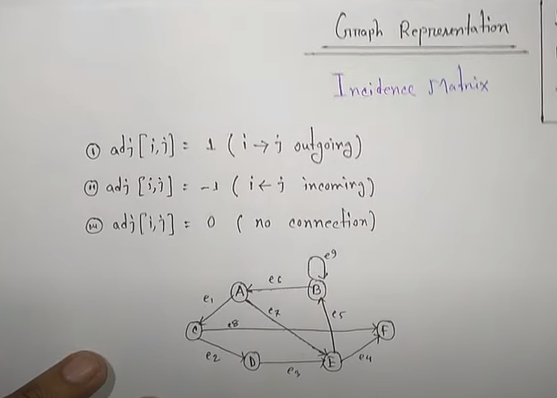 Graph Representation
Incidence Matrix
(i) adj[i,j] = 1 (i → j outgoing)
(ii) adj [i,j] = -1 (i ← j incoming)
(iii) adj[i,j] = 0 ( no connection)
e9
A e6 B
e1 e7 e5
C e8 F
e2 D e3 E e4